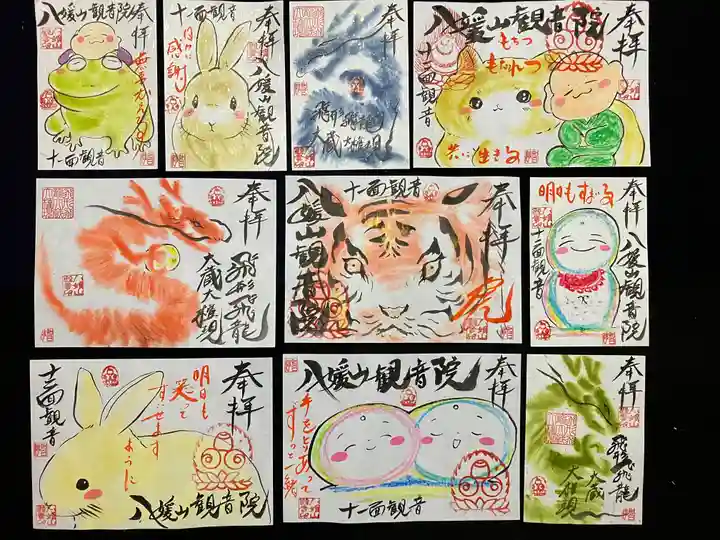 奉拝
八媛山観音院
十一面観音
奉拝
日々に
感謝し
八媛山観音院
十一面観音
奉拝
飛形飛龍
大蔵大権現
奉拝
八媛山観音院
もちつ
もたれつ
共に生きる
十一面観音
奉拝
飛形飛龍
大蔵大権現
奉拝
虎
十一面観音
八媛山観音院
奉拝
八媛山観音院
明日もすすめる
十一面観音
奉拝
明日も
笑って
すごせます
ように
八媛山観音院
十一面観音
奉拝
八媛山観音院
手をとりあって
ずっと一緒
十一面観音
奉拝
飛形飛龍
大蔵
大権現